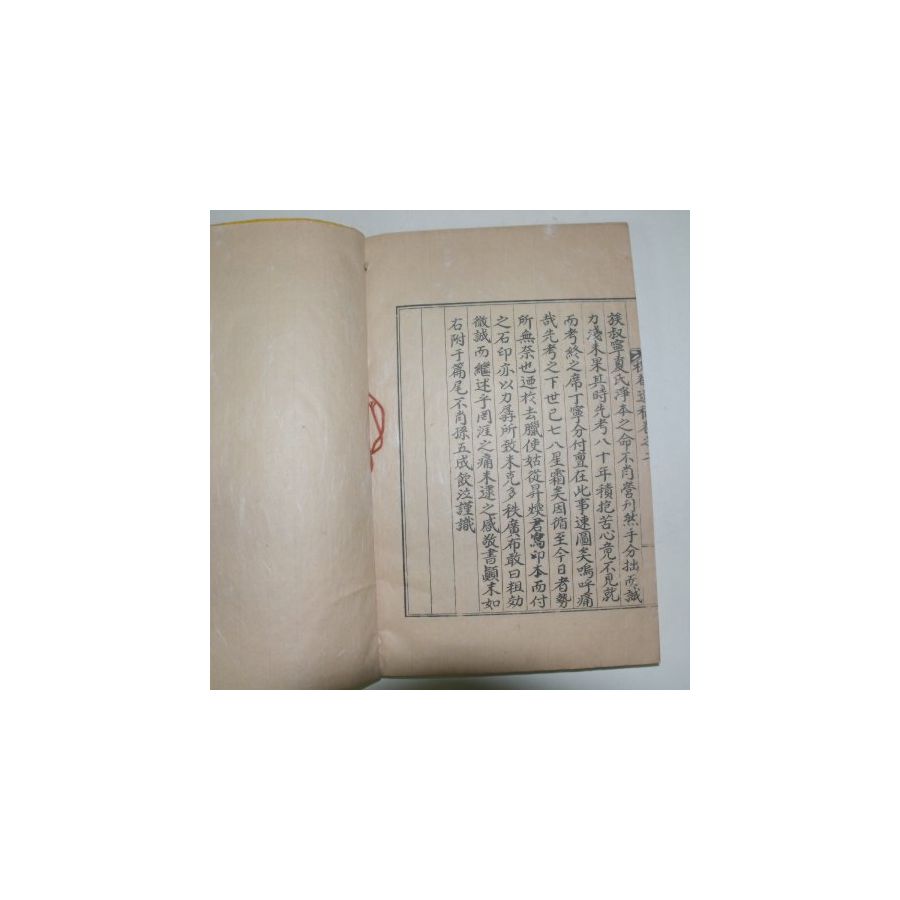 族叔寧夏氏淨本之命不肖營刊然手分拙而誠
力淺未果其時先考八十年積抱苦心竟不見就
而考終之席丁寧分付亶在此事速圖矣嗚呼痛
哉先考之下世已七八星霜矣因循至今日者勢
所無奈也迺於去臘使姑從昇煥君寫印本而付
之石印亦以力孱所致未克多秩廣布敢曰粗効
微誠而繼述乎罔涯之痛未逮之感敬書顚末如
右附于篇尾不肖孫五成飮泣謹識